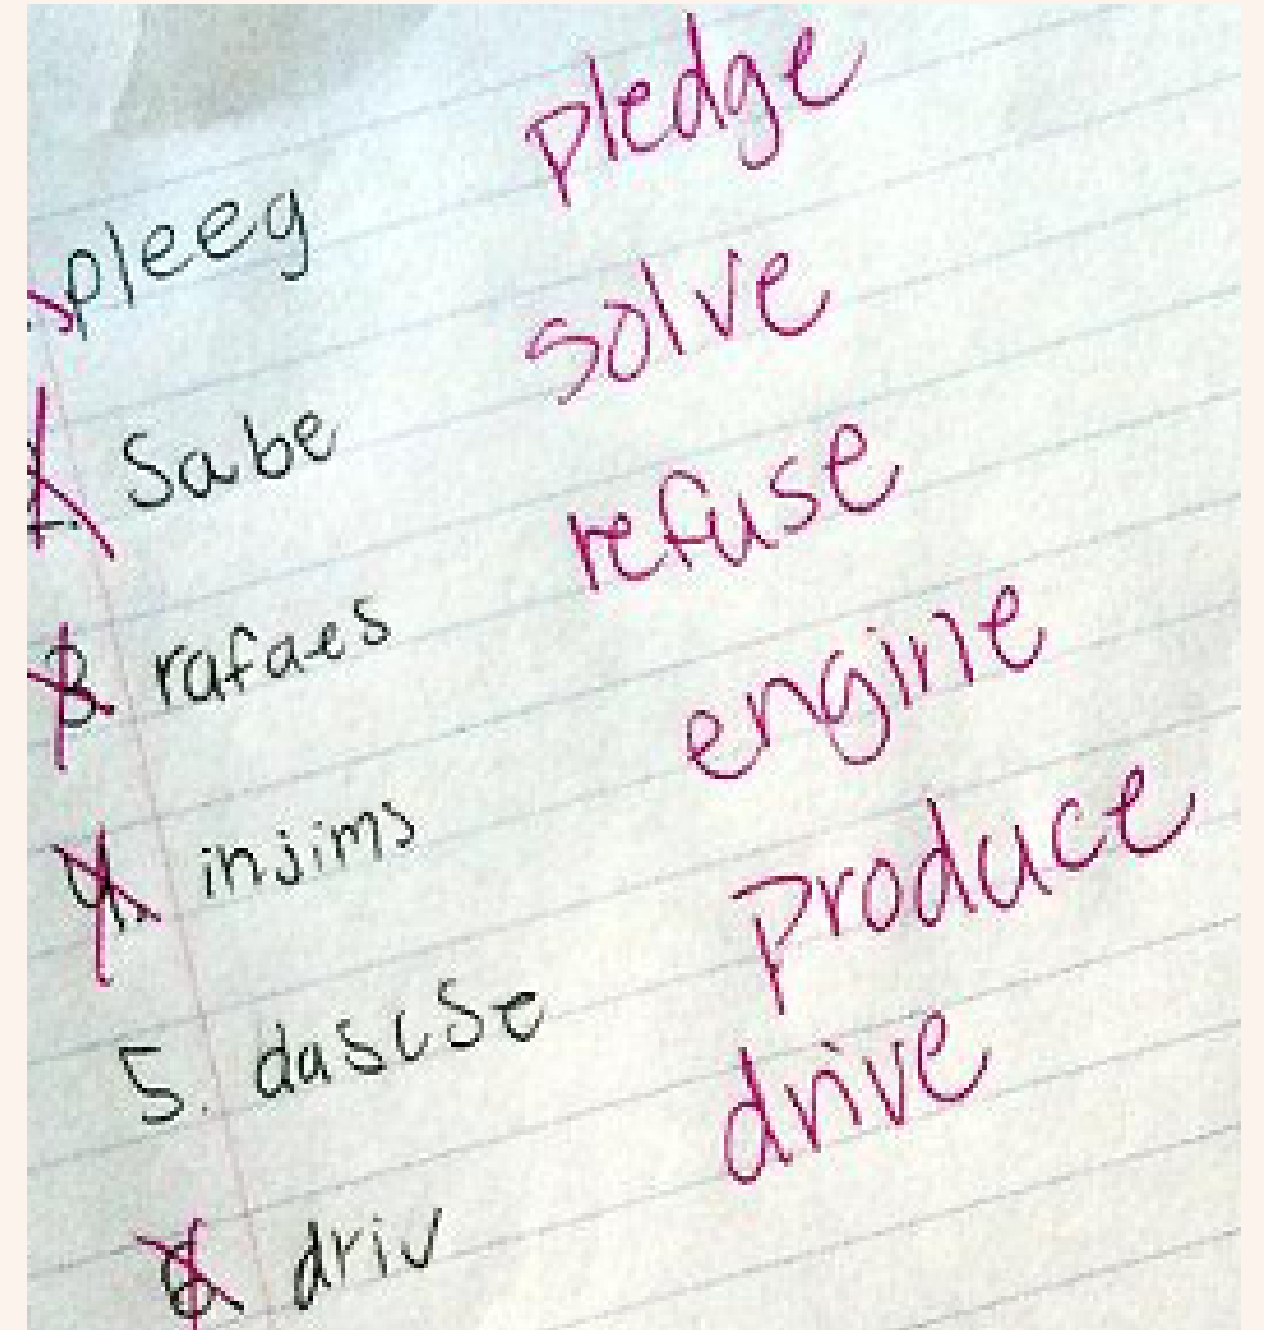 pleeg pledge
2. Sabe solve
3 rafaes refuse
4. injims engine
5. dascse produce
6 driv drive